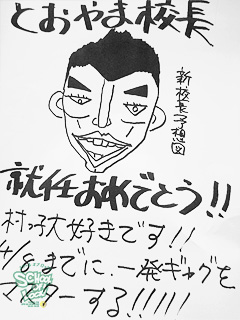 とおやま校長
新校長予想図
就任おめでとう!!
村子大好きです!!
4/8までに、一発ギャグを
マスターする!!!!!
SCHOOL